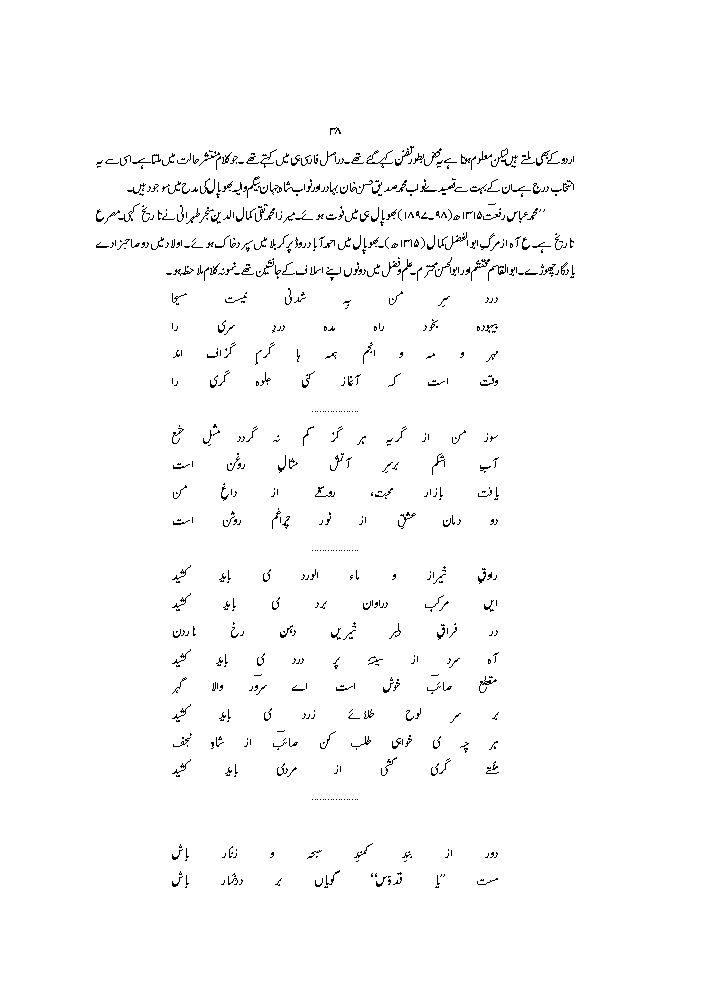 ۳۸
اردو کے بھی ملتے ہیں لیکن معلوم ہوتا ہے یہ محض بطور تفنن کہے گئے تھے۔ دراصل فارسی ہی میں کہتے تھے۔ جو کلام منتشر حالت میں ملتا ہے۔ اسی سے یہ
انتخاب درج ہے۔ ان کے بہت سے قصیدے نواب محمد صدیق حسن خان بہادر اور نواب شاہ جہان بیگم والیہ بھوپال کی مدح میں موجود ہیں۔
’’محمد عباس رفعتؔ ۱۳۱۵ھ (۹۸۔۱۸۹۷) بھوپال ہی میں فوت ہوئے۔ میرزا محمد تقی کمال الدین سنجر طہرانی نے تاریخ کہی۔ مصرع
تاریخ ہے۔ ع آہ از مرگِ ابوالفضل کمال (۱۳۱۵ھ)۔ بھوپال میں احمد آباد روڈ پر کربلا میں سپرد خاک ہوئے۔ اولاد میں دو صاحبزادے
یادگار چھوڑے۔ ابوالقاسم محتشم اور ابوالحسن محترم۔ علم و فضل میں دونوں اپنے اسلاف کے جانشین تھے۔ نمونہ کلام ملاحظہ ہو۔
درد سرِ من بِہ شدنی نیست مسیحا
بیہودہ بخود راہ مدہ دردِ سری را
مہر و مہ و انجم ہمہ ہا گرمِ گزاف اند
وقت است کہ آغاز کنی جلوہ گری را
..................
سوز من از گریہ ہر گز کم نہ گردد مثلِ شمع
آبِ اشکم برسرِ آتش مثالِ روغن است
یافت بازار محبت، رونقے از داغِ من
دو دمان عشقِ از نور چراغم روشن است
..................
راوقِ شیراز و ماء الورد می باید کشید
ایں مرکب دراوان برد می باید کشید
در فراقِ شیریں دہن رخ
آہ سرد از سینۂ پر درد می باید کشید
مقطع صائبؔ خوش است اے سرورؔ والا گہر
بر سرِ لوح طلائے زرد می باید کشید
ہر چہ می خواہی طلب کن صائبؔ از شاہِ نجف
گری کشی از مردی باید کشید
..................
دور از بندِ کمندِ سبحہ و زنار باش
مست ’’یا قدوس‘‘ گویاں بر درِ خمار باش